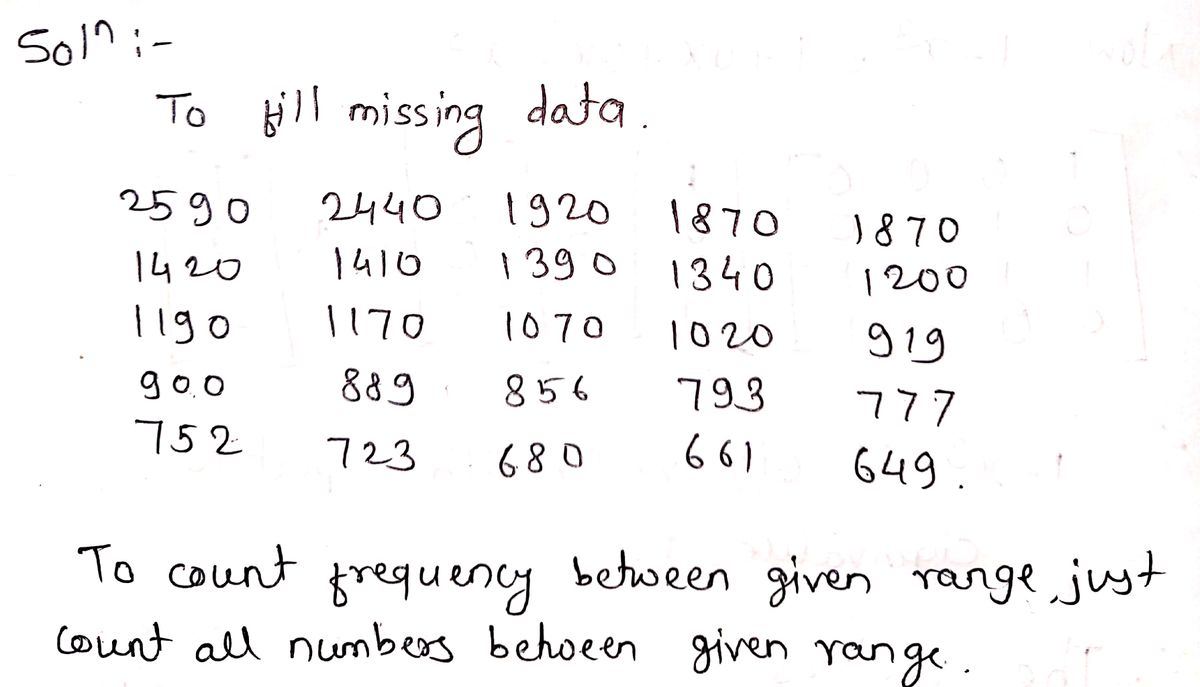 Solⁿ :-
To fill missing data.
2590 2440 1920 1870 1870
1420 1410 1390 1340 1200
1190 1170 1070 1020 919
900 889 856 793 777
752 723 680 661 649.
To count frequency between given range, just
count all numbers between given range.